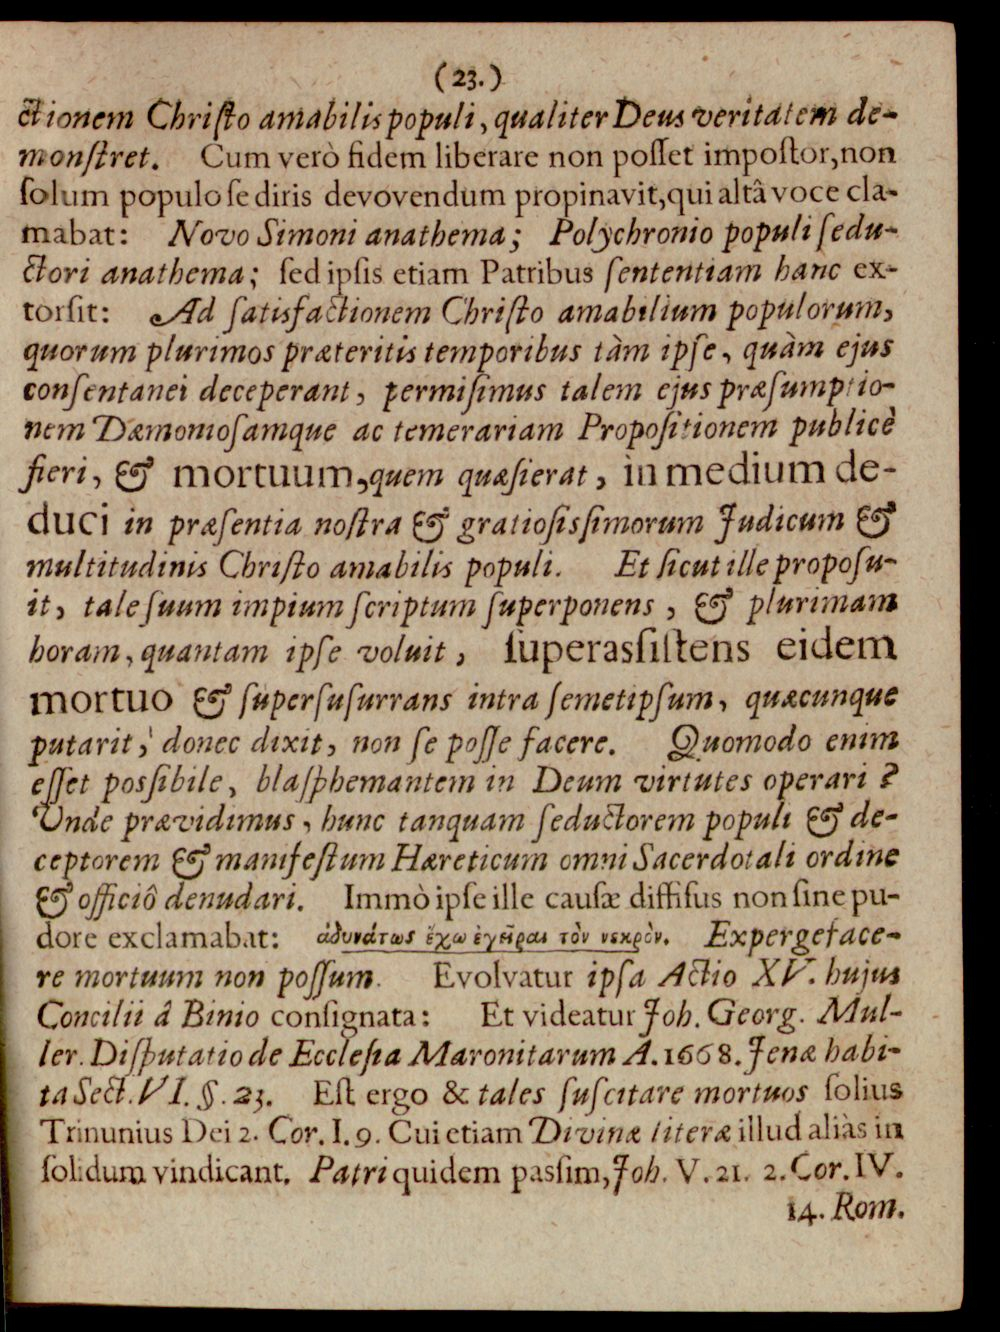 (23.)
ctionem Chriſto amabilis populi, qualiter Deus veritatem de-
monſtret. Cum verò fidem liberare non poſſet impoſtor, non
ſolum populo ſe diris devovendum propinavit, qui altâ voce cla-
mabat: Novo Simoni anathema; Polychronio populi ſedu-
ctori anathema; ſed ipſis etiam Patribus ſententiam hanc ex-
torſit: Ad ſatisfactionem Chriſto amabilium populorum,
quorum plurimos præteritis temporibus tàm ipſe, quàm ejus
conſentanei deceperant, permiſimus talem ejus præſumptio-
nem Dæmonioſamque ac temerariam Propoſitionem publicè
fieri, & mortuum, quem quæſierat, in medium de-
duci in præſentia noſtra & gratioſisſimorum Judicum &
multitudinis Chriſto amabilis populi. Et ſicut ille propoſu-
it, tale ſuum impium ſcriptum ſuperponens, & plurimam
horam, quantam ipſe voluit, ſuperasſiſtens eidem
mortuo & ſuperſuſurrans intra ſemetipſum, quæcunque
putarit, donec dixit, non ſe poſſe facere. Quomodo enim
eſſet posſibile, blaſphemantem in Deum virtutes operari?
Unde prævidimus, hunc tanquam ſeductorem populi & de-
ceptorem & manifeſtum Hæreticum omni Sacerdotali ordine
& officiô denudari. Immò ipſe ille cauſæ diffiſus non ſine pu-
dore exclamabat: ἀδυνάτως ἔχω ἐγεῖραι τὸν νεκρὸν. Expergeface-
re mortuum non poſſum. Evolvatur ipſa Actio XV. hujus
Concilii â Binio conſignata: Et videatur Joh. Georg. Mul-
ler. Diſputatio de Eccleſia Maronitarum A. 1668. Jenæ habi-
ta Sect. VI. §. 23. Eſt ergo & tales ſuſcitare mortuos ſolius
Trinunius Dei 2. Cor. I. 9. Cui etiam Divinæ literæ illud aliàs in
ſolidum vindicant. Patri quidem paſſim, Joh. V. 21. 2. Cor. IV.
14. Rom.